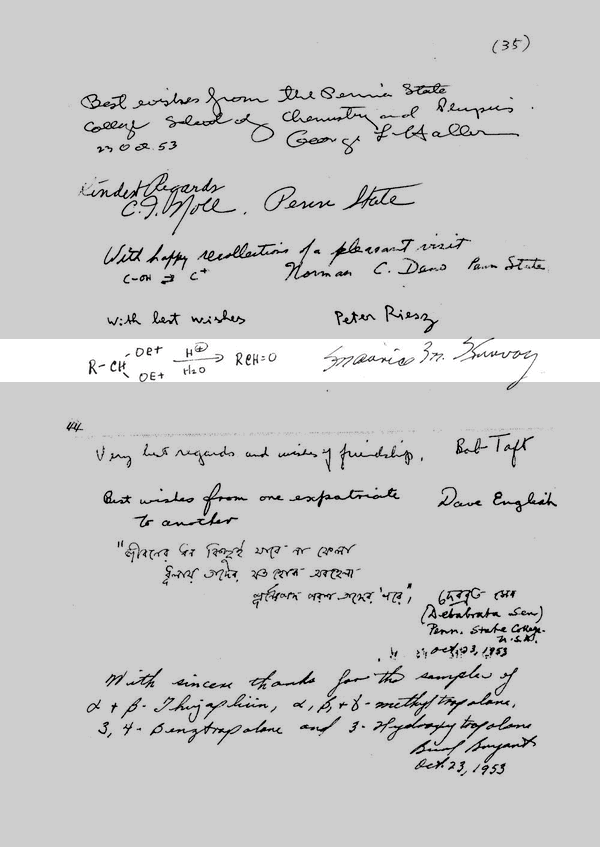 (35)
Best wishes from the Penna State
College School of Chemistry and Physics.
23 Oct. 53 George L. Haller
Kindest Regards
C. I. Noll. Penn State
With happy recollections of a pleasant visit
C-OH ⇌ C+ Norman C. Deno Penn State
With best wishes Peter Riesz
R-CH OEt OEt H⊕ H2O → RCH=O Maurice M. Kreevoy
44
Very best regards and wishes of friendship. Bob Taft
Best wishes from one expatriate Dave English
to another
"জীবনের ধন কিছুই যাবে না ফেলা
ধূলায় তাদের যত হোক অবহেলা
পূর্ণের পদ পরশ তাদের 'পরে", দেবব্রত সেন
(Debabrata Sen)
Penn. State College.
U.S.A.
Oct 23, 1953
With sincere thanks for the samples of
α + β - Thujaplicin, α, β, + γ - methyl tropolone,
3, 4 - Benztropolone and 3 - Hydroxy tropolone
Bryant
Oct. 23, 1953